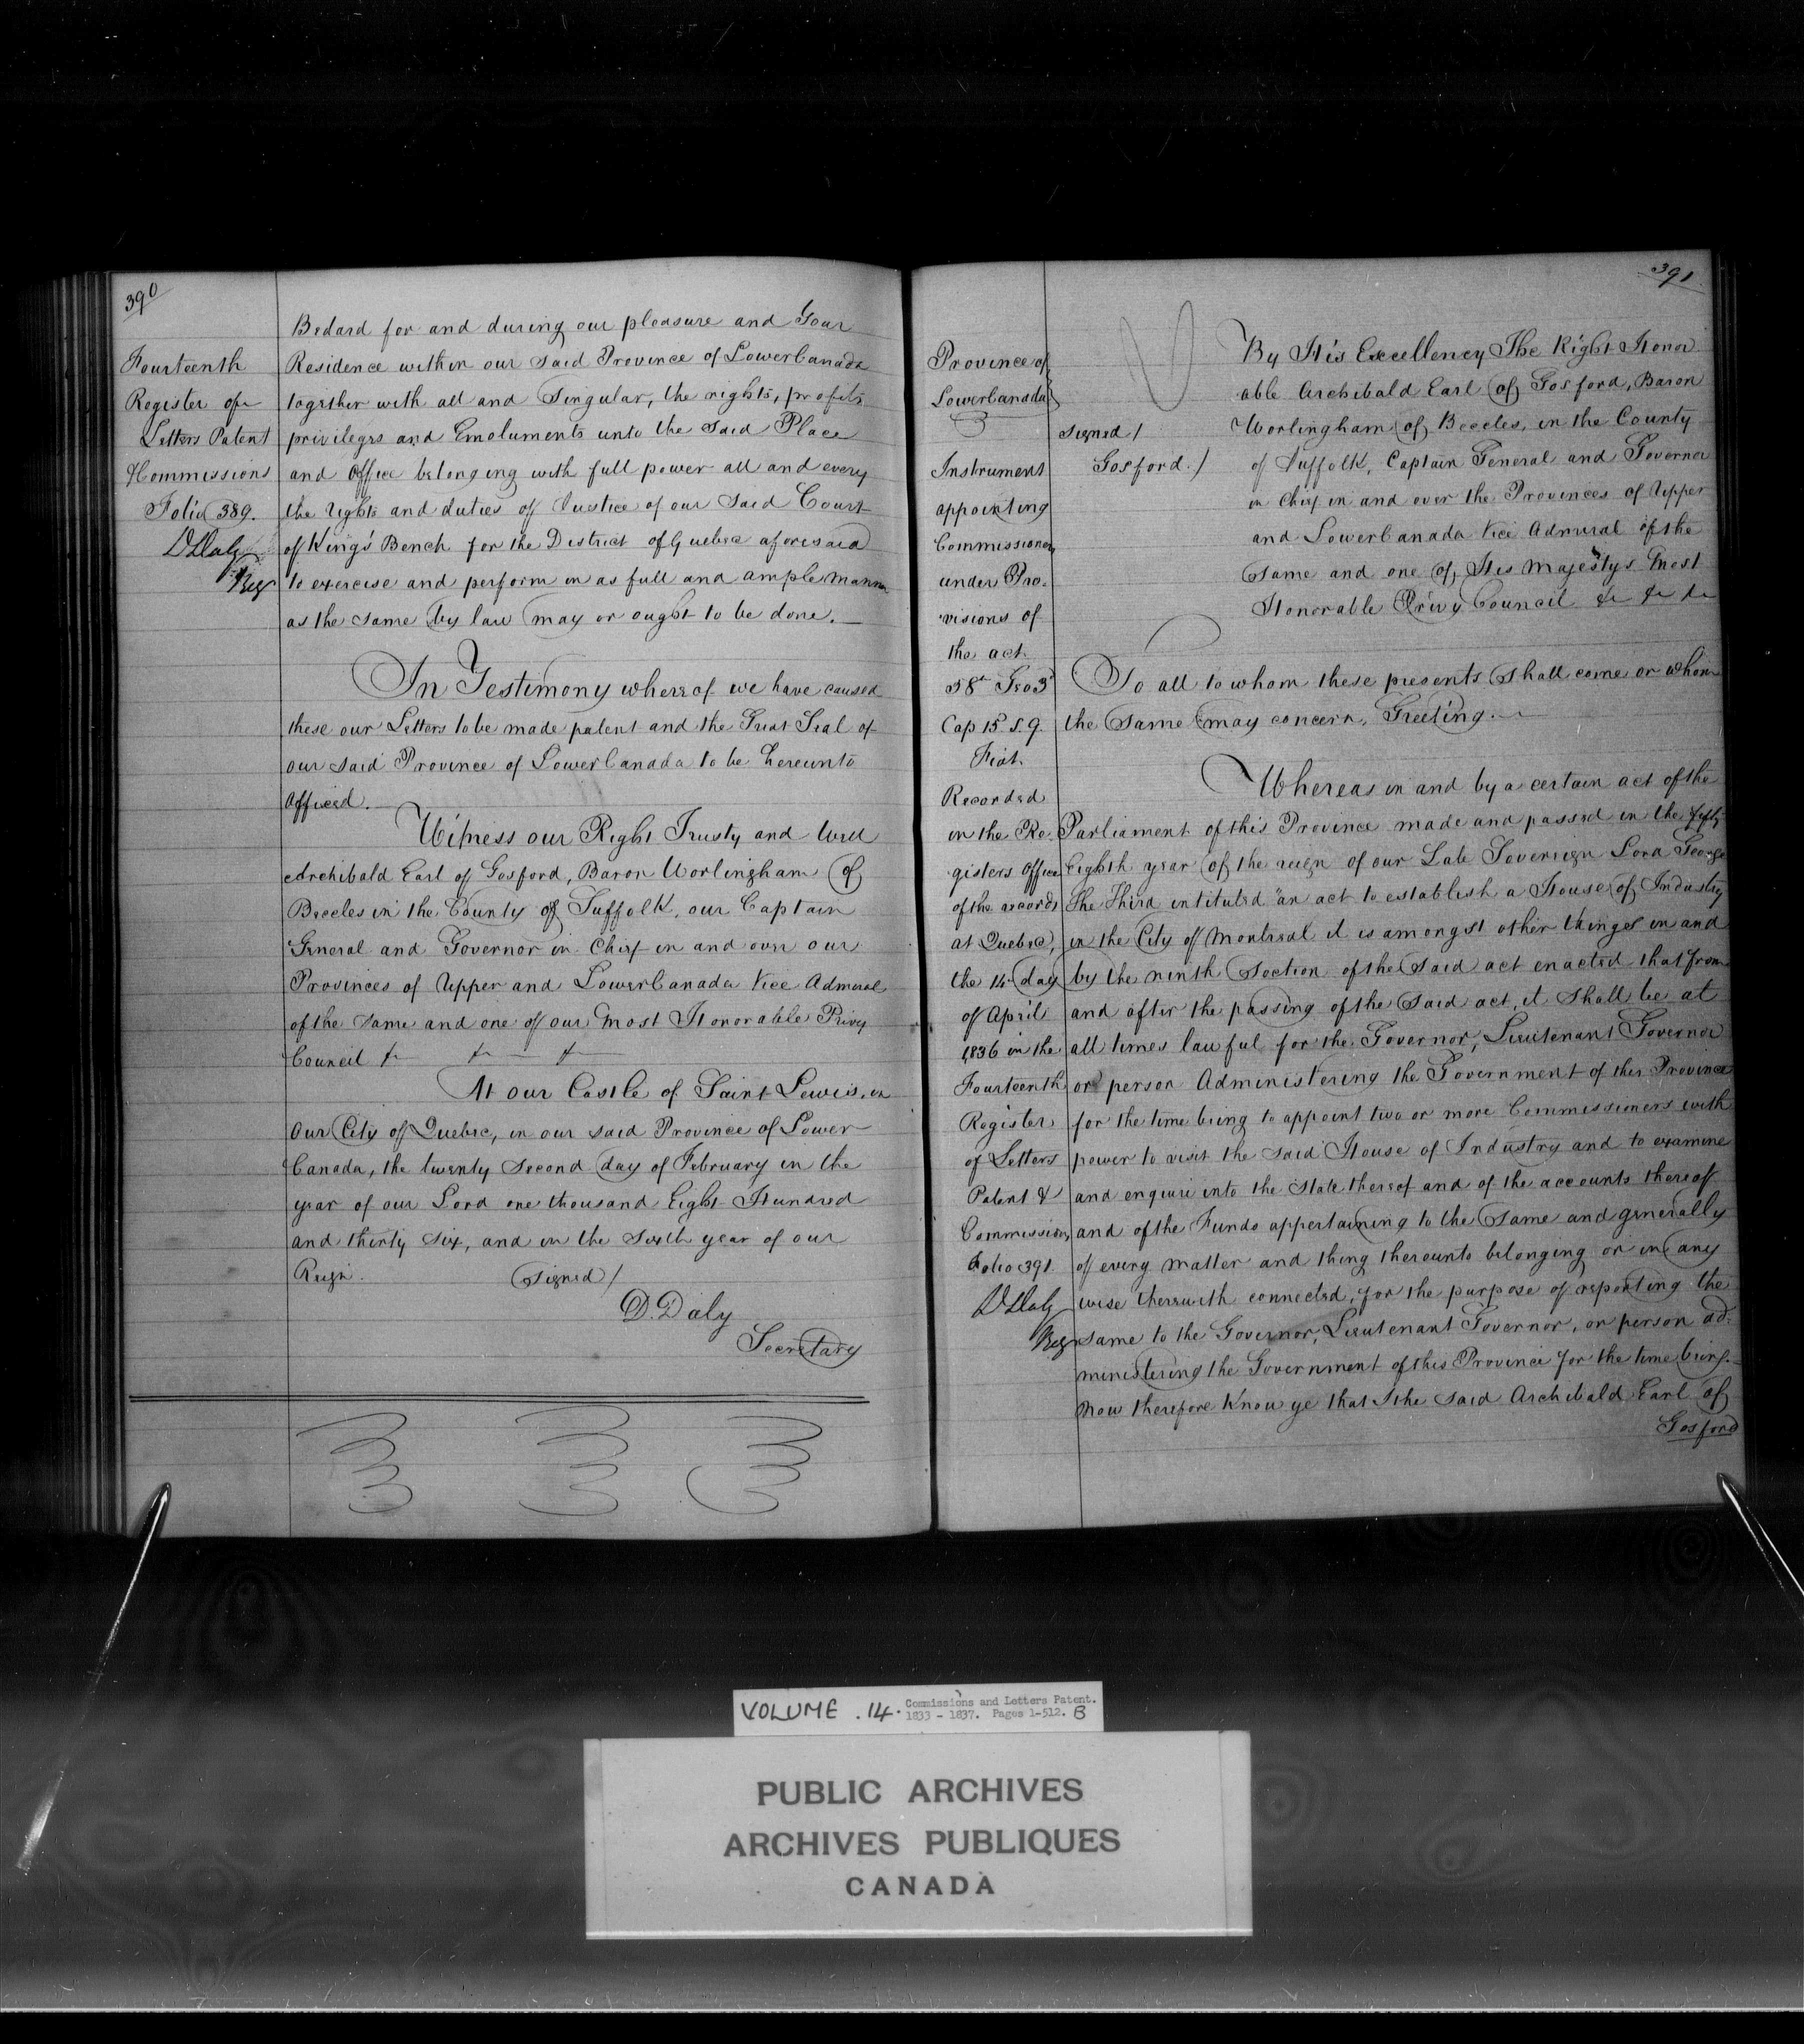 390
Fourteenth
Register of
Letters Patent
& Commissions
Folio 389.
D Daly
Reg
Bedard for and during our pleasure and Your
Residence within our said Province of Lower Canada
together with all and Singular, the rights, profits
privileges and Emoluments unto the said Place
and Office belonging with full power all and every
the rights and duties of Justice of our Said Court
of King's Bench for the District of Quebec aforesaid
to exercise and perform in as full and ample manner
as the same by law may or ought to be done.
In Testimony whereof we have caused
these our Letters to be made patent and the Great Seal of
our said Province of Lower Canada to be hereunto
affixed.
Witness our Right Trusty and Well
Archibald Earl of Gosford, Baron Worlingham of
Beccles in the County of Suffolk, our Captain
General and Governor in Chief in and over our
Provinces of Upper and Lower Canada Vice Admiral
of the same and one of our Most Honorable Privy
Council &c &c &c
At our Castle of Saint Lewis, in
Our City of Quebec, in our said Province of Lower
Canada, the twenty second day of February in the
year of our Lord one thousand Eight Hundred
and thirty six, and in the sixth year of our
Reign.
(Signed)
D. Daly
Secretary
391.
Province of
Lower Canada
Instrument
appointing
Commissioners
under Pro-
visions of
the act
58th Geo 3d
Cap 15 S. 9.
Fiat.
Recorded
in the Re-
gisters Office
of the records
at Quebec,
the 14 day
of April
1836 in the
Fourteenth
Register
of Letters
Patent &
Commissions
Folio 391.
D Daly
Reg
Signed /
Gosford. /
By His Excellency The Right Honor
able Archibald Earl of Gosford, Baron
Worlingham of Beccles, in the County
of Suffolk, Captain General and Governor
in Chief in and over the Provinces of Upper
and Lower Canada Vice Admiral of the
Same and one of His Majestys Most
Honorable Privy Council &c &c &c
To all to whom these presents Shall come or whom
the Same may concern, Greeting.
Whereas in and by a certain act of the
Parliament of this Province made and passed in the fifty
Eighth year of the reign of our Late Sovereign Lord George
The Third intituled "an act to establish a House of Industry
in the City of Montreal it is amongst other things in and
by the ninth Section of the Said act enacted that from
and after the passing of the Said act, it Shall be at
all times lawful for the Governor, Lieutenant Governor
or person Administering the Government of this Province
for the time being to appoint two or more Commissioners with
power to visit the said House of Industry and to examine
and enquire into the State thereof and of the accounts thereof
and of the Funds appertaining to the Same and generally
of every matter and thing thereunto belonging or in any
wise therewith connected, for the purpose of reporting the
same to the Governor, Lieutenant Governor, or person ad-
ministering the Government of this Province for the time being.
Now therefore Know ye that I the said Archibald Earl of
Gosford
VOLUME . 14. Commissions and Letters Patent.
1833 - 1837. Pages 1-512. B
PUBLIC ARCHIVES
ARCHIVES PUBLIQUES
CANADA